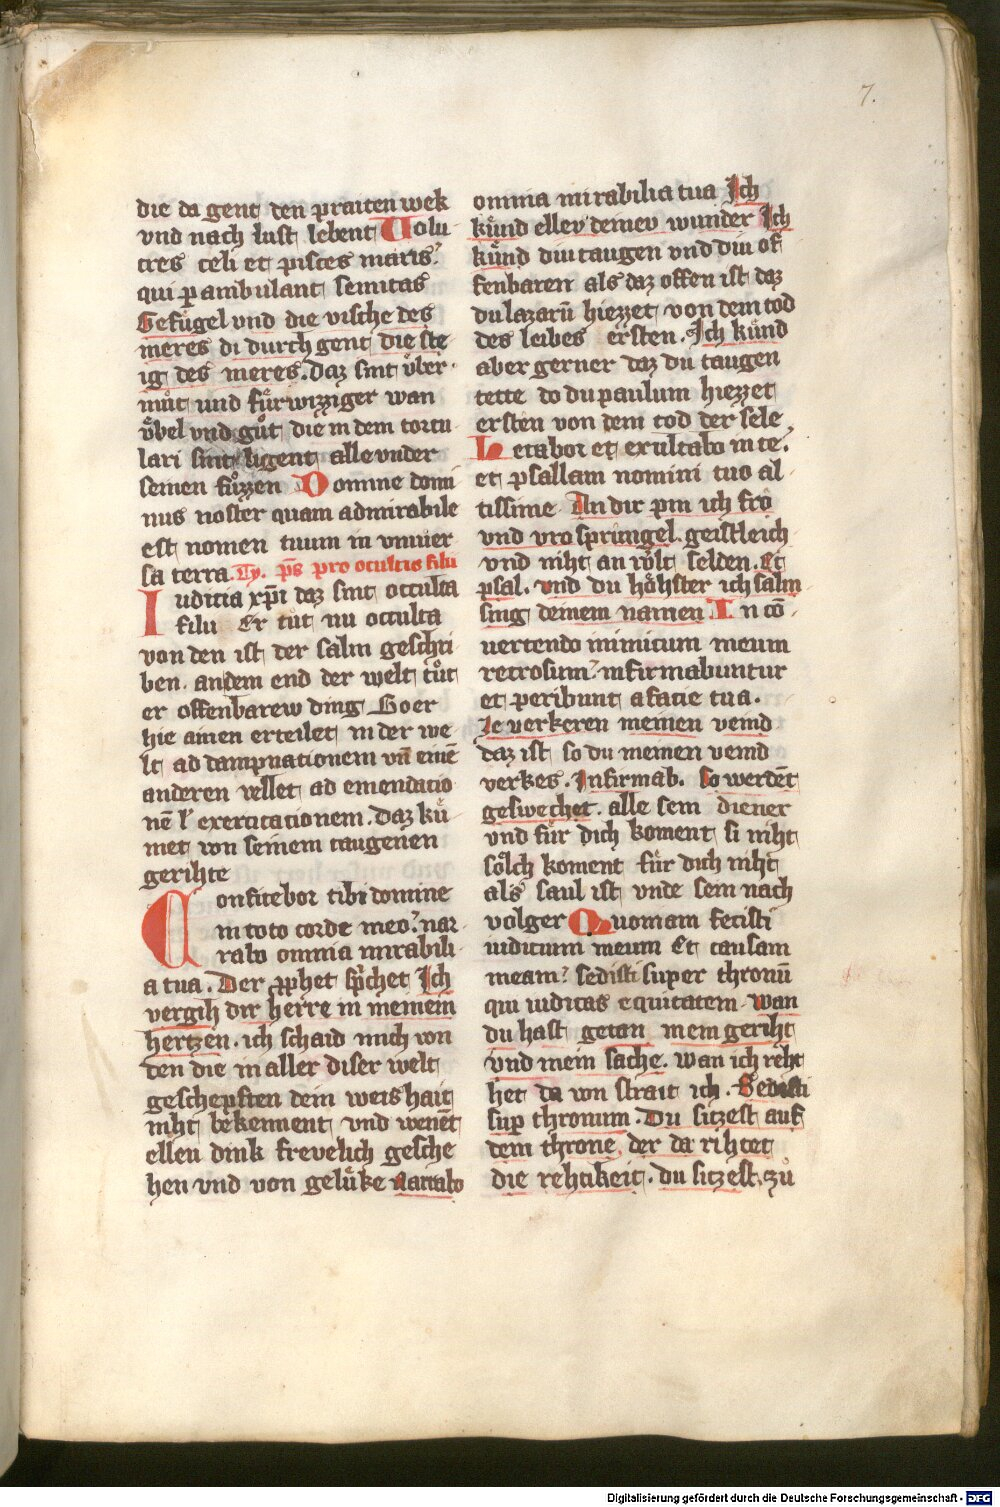 7.
die da gent den praiten wek
vnd nach lust lebent Uolu
cres celi et pisces maris?
qui p ambulant semitas
Gefügel vnd die vische des
meres di durch gent die ste
ig des meres. Daz sint vͤber
muͦt und fuͤrwizziger wan
vͤbel vnd guͦt die in dem tortu
lari sint ligent alle vnder
seinen fuͦzzen Domine domi
nus noster quam admirabile
est nomen tuum in vniuer
sa terra. ps pro ocultis filii
Iudicia xp̄i daz sint occulta
filii Er tuͦt nu occulta
von den ist der salm geschri
ben. an dem end der welt tuͦt
er offenbarew ding Goer
hie ainen erteilet in der we
lt ad dampnationem vn̄ einē
anderen vellet ad emendatio
nē l' exercitacionem. Daz kuͤ
met von seinem taugenen
gerihte
Confitebor tibi domine
in toto corde meo? nar
rabo omnia mirabili
a tua. Der pphet sp̄chet Ich
vergih dir herre in meinem
hertzen. ich schaid mich von
den die in aller diser welt
geschepften dein weishait
niht bekennent vnd wenēt
ellen dink frevelich gesche
hen vnd von geluͤke Narrabo
omnia mirabilia tua Ich
kuͤnd ellev deinev wunder Ich
kuͤnd diu taugen vnd diu of
fenbaren als daz offen ist daz
du lazarū hiezzet von dem tod
des leibes ersten. Ich kuͤnd
aber gerner daz du taugen
tette do du paulum hiezzet
ersten von dem tod der sele
Letabor et exultabo in te?
et psallam nomini tuo al
tissime An dir pin ich fro
vnd vro springel geistleich
vnd niht an wͦlt selden. Et
psal. vnd du hoͤhster ich salm
sing deinem namen In cō
uertendo inimicum meum
retrosum? infirmabuntur
et peribunt a facie tua.
Ze verkeren meinen veind
daz ist so du meinen veind
verkes. Infirmab. so werdēt
geswechet. alle sein diener
vnd fuͤr dich koment si niht
soͤlch koment fuͤr dich niht
als saul ist vnde sein nach
volger Quoniam fecisti
iudicium meum et causam
meam? sedisti super thronū
qui iudicas equitatem Wan
du hast getan mein geriht
vnd mein sache. Wan ich reht
het da von strait ich. Sedisti
sup thronum. Du sitzest auf
dem throne der da rihtet
die rehtikeit. du sitzest zuͦ
Digitalisierung gefördert durch die Deutsche Forschungsgemeinschaft - DFG